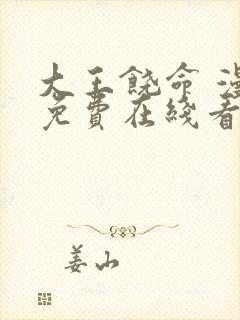 大王饶命 漫
免費在线看
姜山